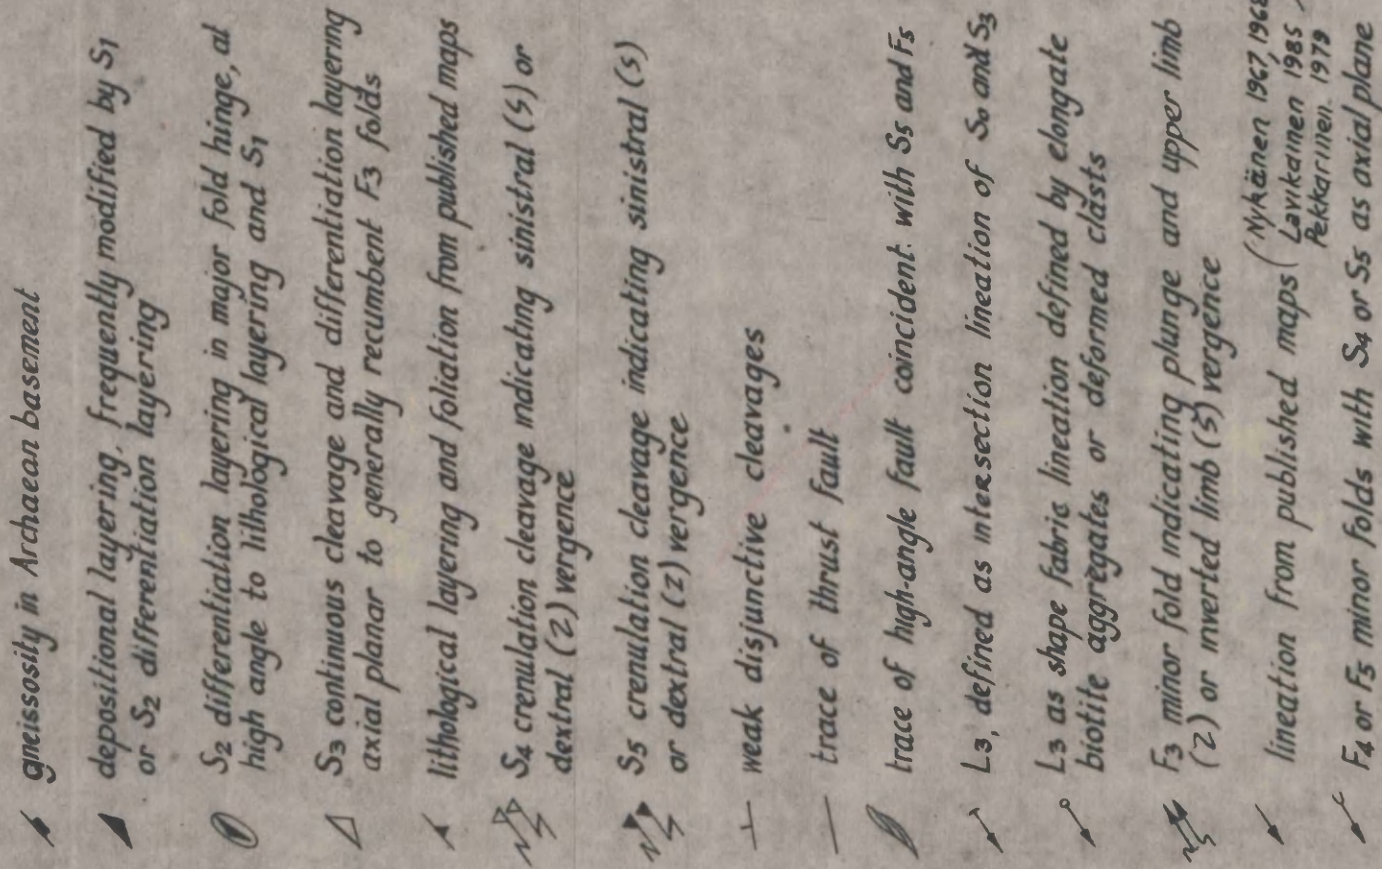 gneissosity in Archaean basement
depositional layering, frequently modified by S1
or S2 differentiation layering
S2 differentiation layering in major fold hinge, at
high angle to lithological layering and S1
S3 continuous cleavage and differentiation layering
axial planar to generally recumbent F3 folds
lithological layering and foliation from published maps
S4 crenulation cleavage indicating sinistral (S) or
dextral (Z) vergence
S5 crenulation cleavage indicating sinistral (S)
or dextral (Z) vergence
weak disjunctive cleavages
trace of thrust fault
trace of high-angle fault coincident with S5 and F5
L3, defined as intersection lineation of S0 and S3
L3 as shape fabric lineation defined by elongate
biotite aggregates or deformed clasts
F3 minor fold indicating plunge and upper limb
(Z) or inverted limb (S) vergence
lineation from published maps (Nykänen 1967, 1968
Lavikainen 1985
Pekkarinen 1979
F4 or F5 minor folds with S4 or S5 as axial plane